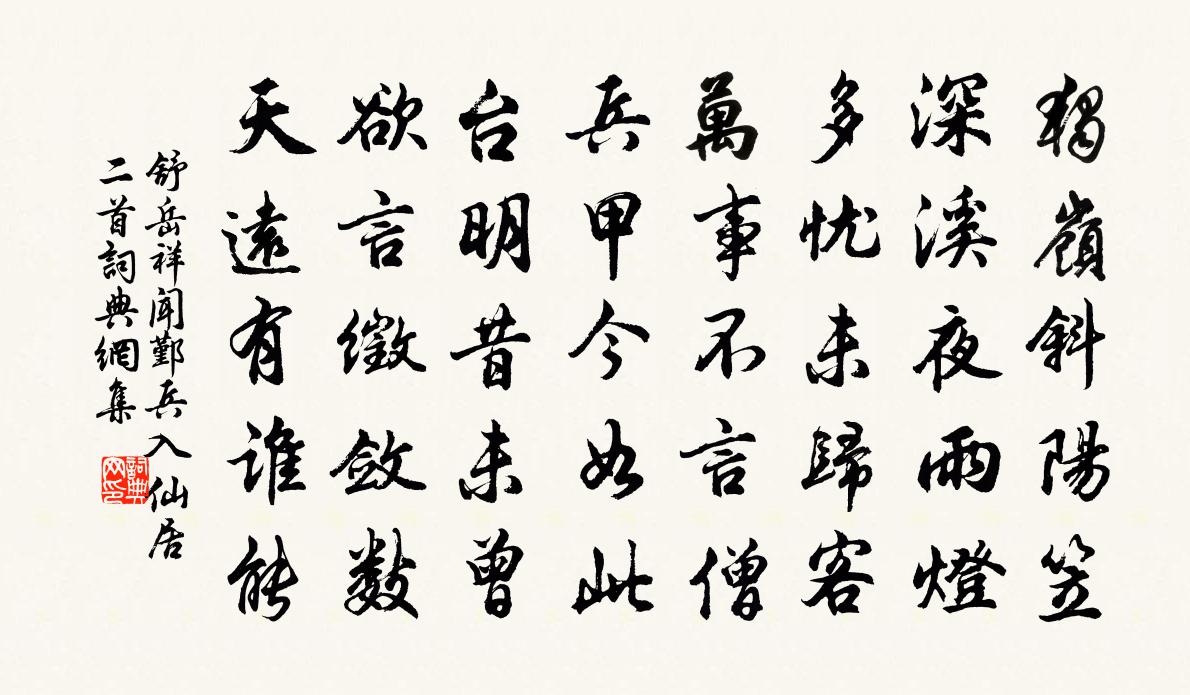 獨嶺斜陽笠
深溪夜雨燈
多忧未歸客
萬事不言僧
兵甲今如此
台明昔未曾
欲言徵斂數
天遠有誰能
舒岳祥闻鄞兵入仙居
二首詞典網集
詞典网印